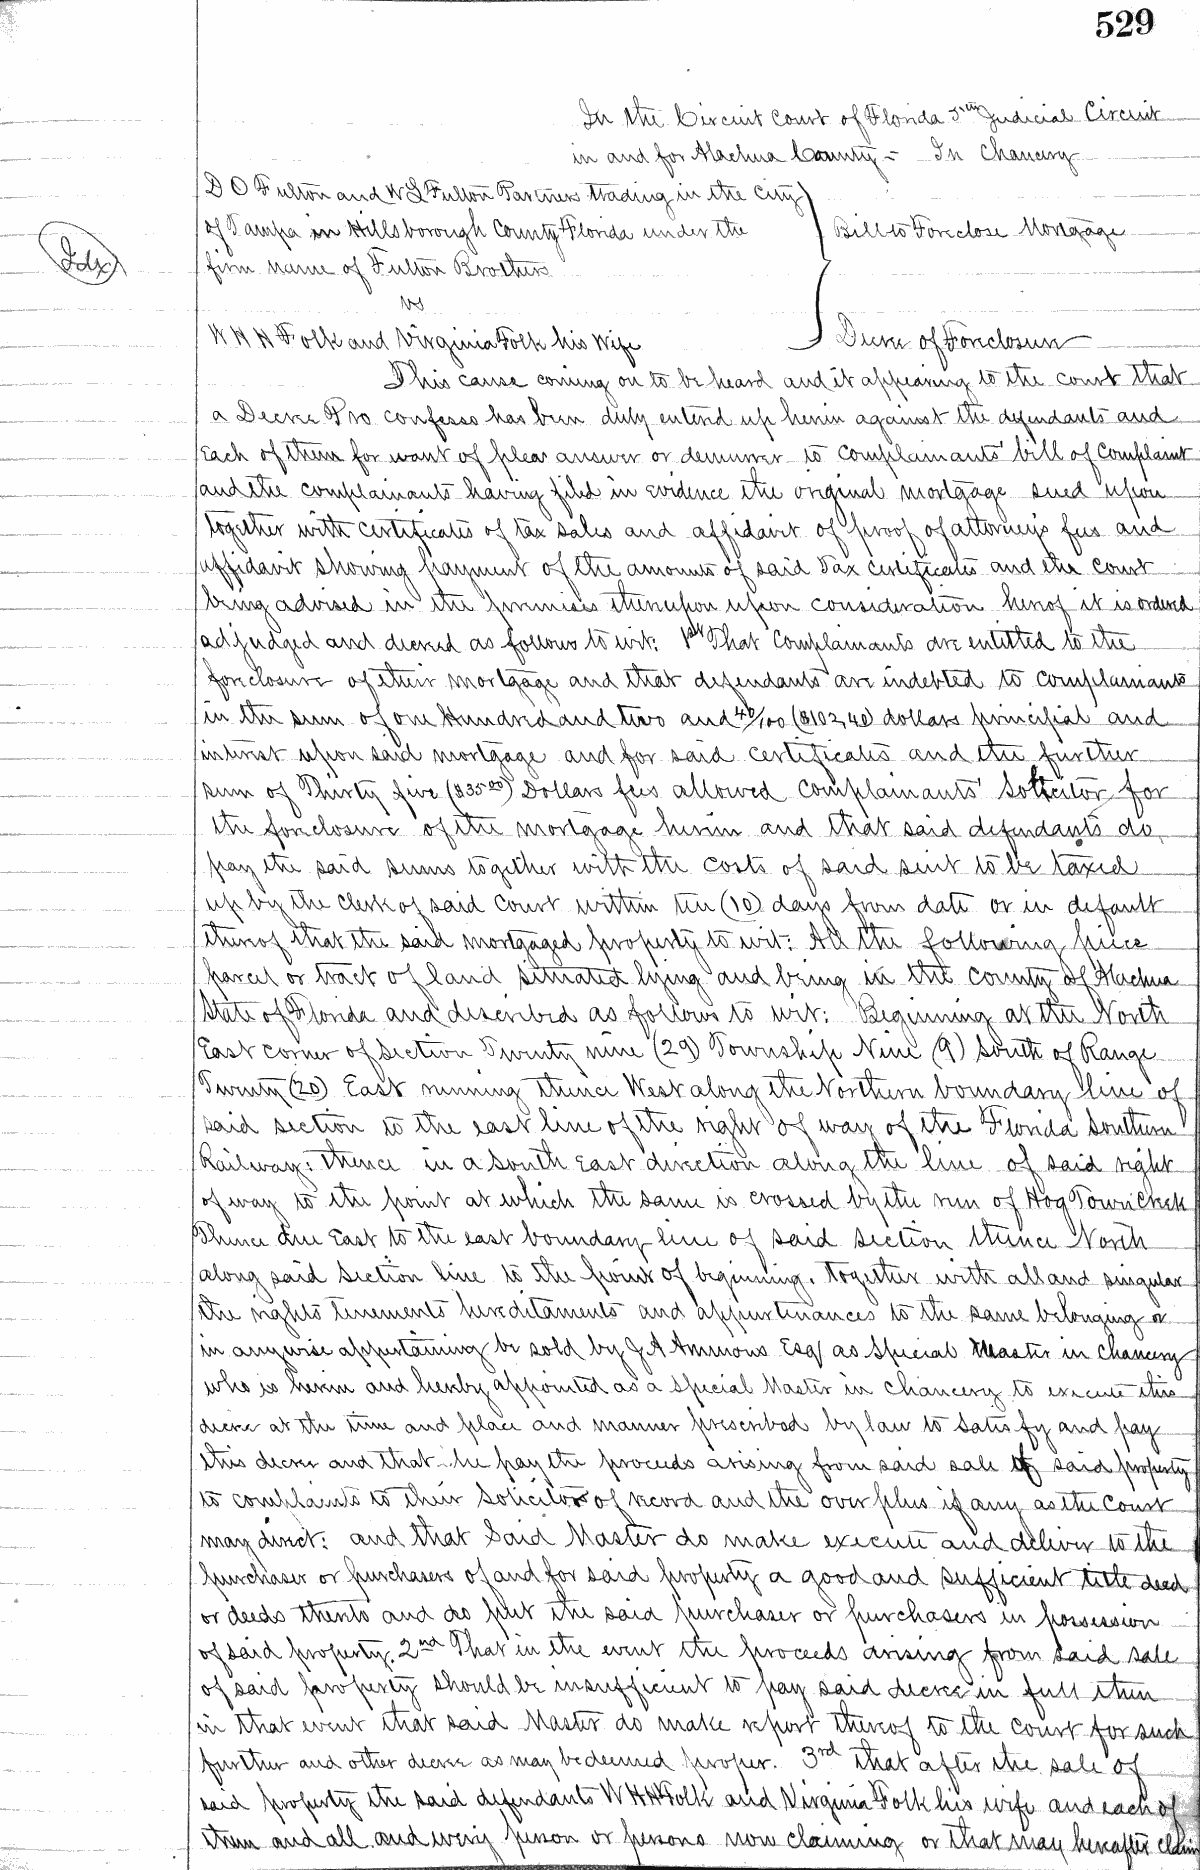 529
In the Circuit Court of Florida 5th Judicial Circuit
in and for Alachua County - In Chancery
D O Fulton and W L Fulton Partners trading in the City
of Tampa in Hillsborough County Florida under the
firm name of Fulton Brothers
Bill to Foreclose Mortgage
Idx
vs
W H H Folk and Virginia Folk his Wife
Decree of Foreclosure
This cause coming on to be heard and it appearing to the court that
a Decree Pro confesso has been duly entered up herein against the defendants and
Each of them for want of plea answer or demurrer to Complainants' bill of Complaint
and the complainants having filed in evidence the original mortgage sued upon
together with certificates of tax sales and affidavit of proof of attorney's fees and
affidavit showing payment of the amounts of said Tax certificates and the court
being advised in the premises thereupon upon consideration hereof it is ordered
adjudged and decreed as follows to wit: 1st That Complainants are entitled to the
foreclosure of their mortgage and that defendants are indebted to complainants
in the sum of one Hundred and two and 40/100 ($102,40) dollars principal and
interest upon said mortgage and for said certificates and the further
sum of Thirty five ($35 00) Dollars fees allowed Complainants' Solicitor for
the foreclosure of the mortgage herein and that said defendants do
pay the said sums together with the costs of said suit to be taxed
up by the Clerk of said Court within ten (10) days from date or in default
thereof that the said mortgaged property to wit: All the following piece
parcel or tract of land situated lying and being in the County of Alachua
State of Florida and described as follows to wit: Beginning at the North
East corner of Section Twenty nine (29) Township Nine (9) South of Range
Twenty (20) East running thence West along the Northern boundary line of
said section to the east line of the right of way of the Florida Southern
Railway: thence in a South East direction along the line of said right
of way to the point at which the same is crossed by the run of Hog Town Creek
Thence due East to the east boundary line of said Section thence North
along said Section line to the point of beginning. Together with all and singular
the rights tenements hereditaments and appurtenances to the same belonging or
in anywise appertaining be sold by J A Ammons Esq as Special Master in Chancery
who is herein and hereby appointed as a Special Master in Chancery to execute this
decree at the time and place and manner prescribed by law to satisfy and pay
this decree and that he pay the proceeds arising from said sale of said property
to complaints to their Solicitors of record and the over plus if any as the Court
may direct: and that Said Master do make execute and deliver to the
purchaser or purchasers of and for said property a good and sufficient title deed
or deeds thereto and do put the said purchaser or purchasers in possession
of said property. 2nd That in the event the proceeds arising from said sale
of said property should be insufficient to pay said decree in full then
in that event that said Master do make report thereof to the court for such
further and other decree as may be deemed proper. 3rd that after the sale of
said property the said defendants W H H Folk and Virginia Folk his wife and each of
them and all and every person or persons now claiming or that may hereafter claim